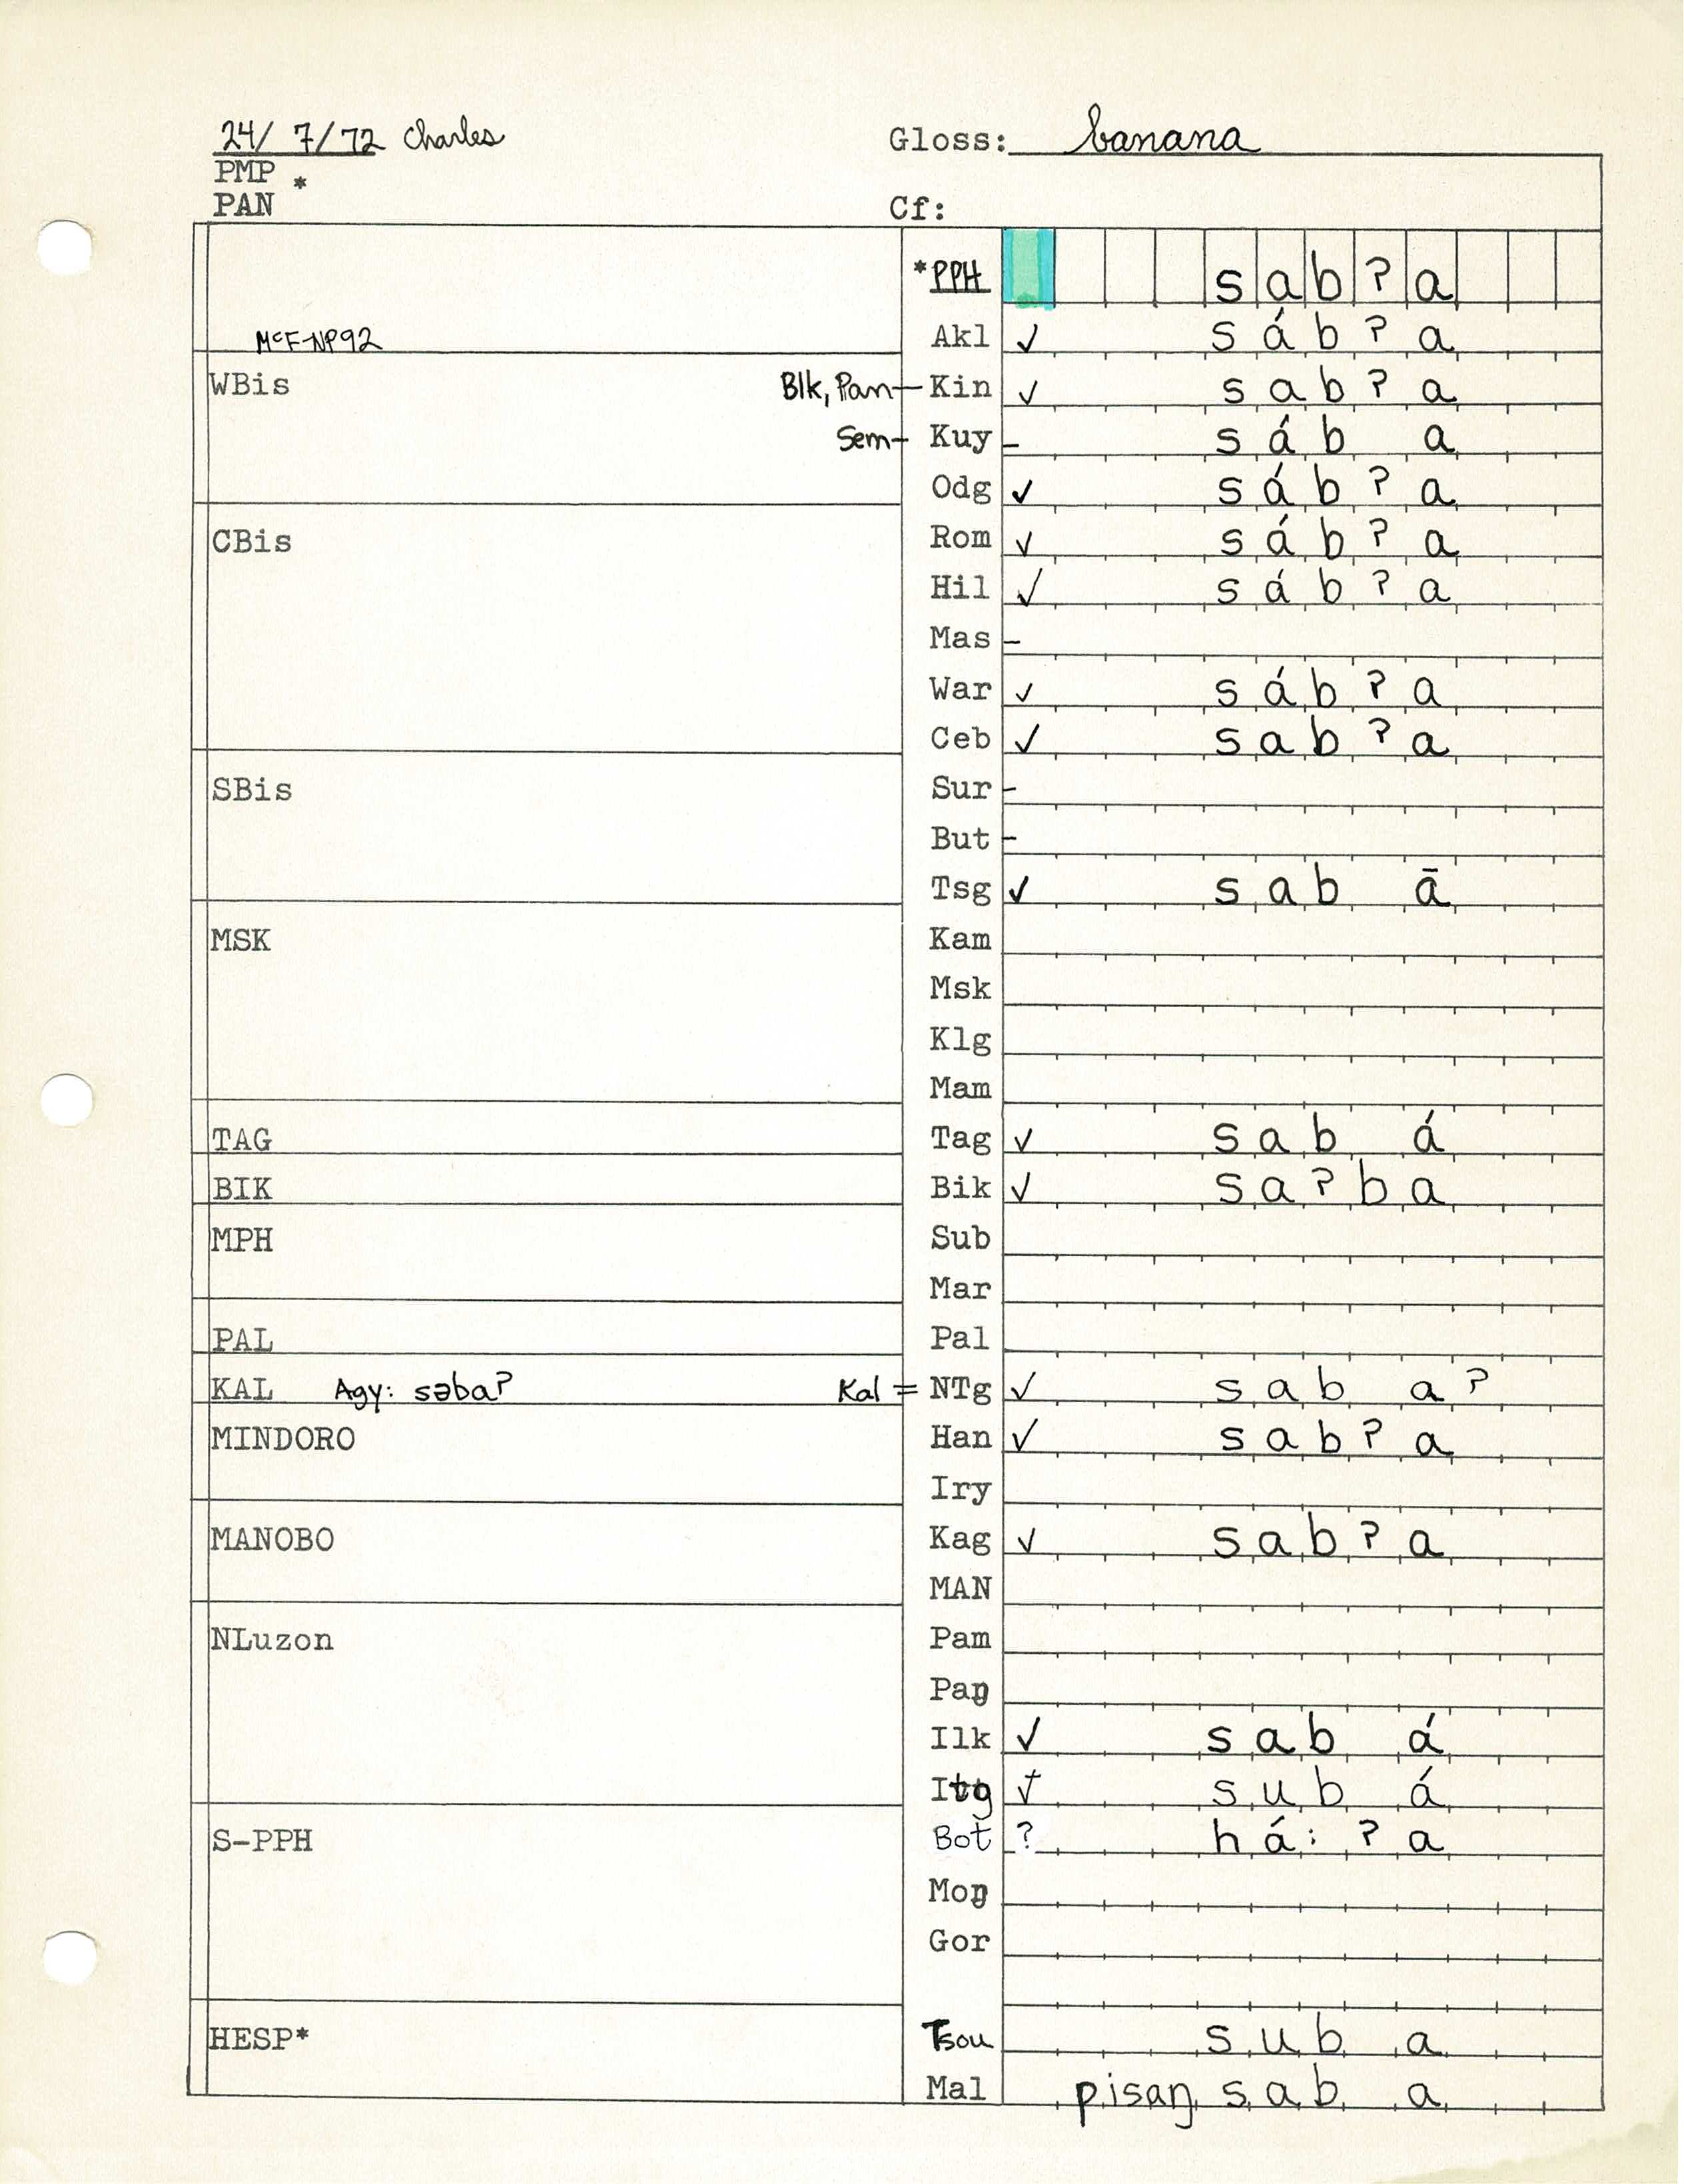 24/ 7/72 Charles Gloss: banana
PMP *
PAN Cf:
*PPH s a b ʔ a
McF-NP92 Akl ✓ s á b ʔ a
WBis Blk, Pan- Kin ✓ s a b ʔ a
Sem- Kuy - s á b a
Odg ✓ s á b ʔ a
CBis Rom ✓ s á b ʔ a
Hil ✓ s á b ʔ a
Mas -
War ✓ s á b ʔ a
Ceb ✓ s a b ʔ a
SBis Sur -
But -
Tsg ✓ s a b ā
MSK Kam
Msk
Klg
Mam
TAG Tag ✓ s a b á
BIK Bik ✓ s a ʔ b a
MPH Sub
Mar
PAL Pal
KAL Agy: səbaʔ Kal = NTg ✓ s a b a ʔ
MINDORO Han ✓ s a b ʔ a
Iry
MANOBO Kag ✓ s a b ʔ a
MAN
NLuzon Pam
Paŋ
Ilk ✓ s a b á
Itg ✓ s u b á
S-PPH Bot ? h á : ʔ a
Moŋ
Gor
HESP* Tsou s u b a
Mal pisaŋ s a b a